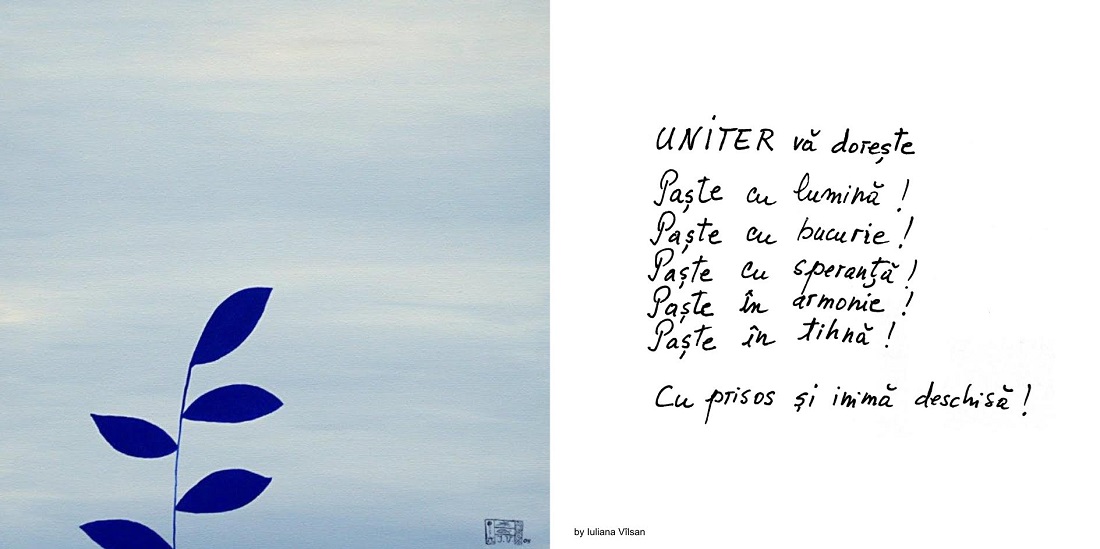 UNITER vă dorește
Paște cu lumină !
Paște cu bucurie !
Paște cu speranță !
Paște în armonie !
Paște în tihnă !
Cu prisos și inimă deschisă !
by Iuliana Vîlsan